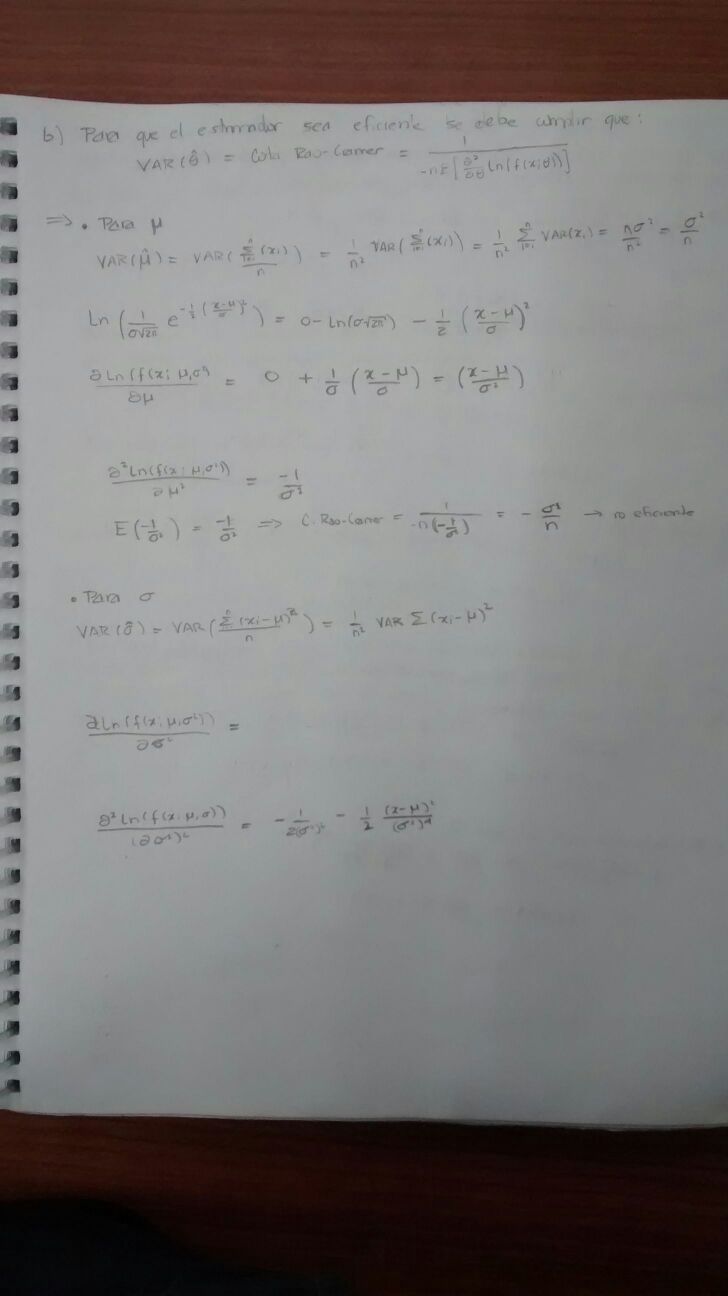 b) Para que el estimador sea eficiente se debe cumplir que:
VAR(θ̂) = Cota Rao-Cramer = 1 / -nE[∂²/∂θ ln(f(x;θ))]
=> • Para μ
VAR(μ̂) = VAR(Σᵢ₌₁ⁿ(xᵢ)/n) = 1/n² VAR(Σᵢ₌₁ⁿ(xᵢ)) = 1/n² Σᵢ₌₁ⁿ VAR(xᵢ) = nσ²/n² = σ²/n
Ln(1/(σ√2π) e^(-1/2((x-μ)/σ)²)) = 0 - Ln(σ√2π) - 1/2 ((x-μ)/σ)²
∂Ln(f(x; μ,σ²)/∂μ = 0 + 1/σ ((x-μ)/σ) = ((x-μ)/σ²)
∂²Ln(f(x; μ,σ²))/∂μ² = -1/σ²
E(-1/σ²) = -1/σ² => C. Rao-Cramer = 1/(-n(-1/σ²)) = -σ²/n → no eficiente
• Para σ
VAR(σ̂) = VAR(Σᵢ₌₁ⁿ(xᵢ-μ)²/n) = 1/n² VAR Σ(xᵢ-μ)²
∂Ln(f(x; μ,σ²))/∂σ² =
∂²Ln(f(x; μ,σ))/(∂σ²)² = -1/2(σ²)² - 1/2 (x-μ)²/(σ²)⁴